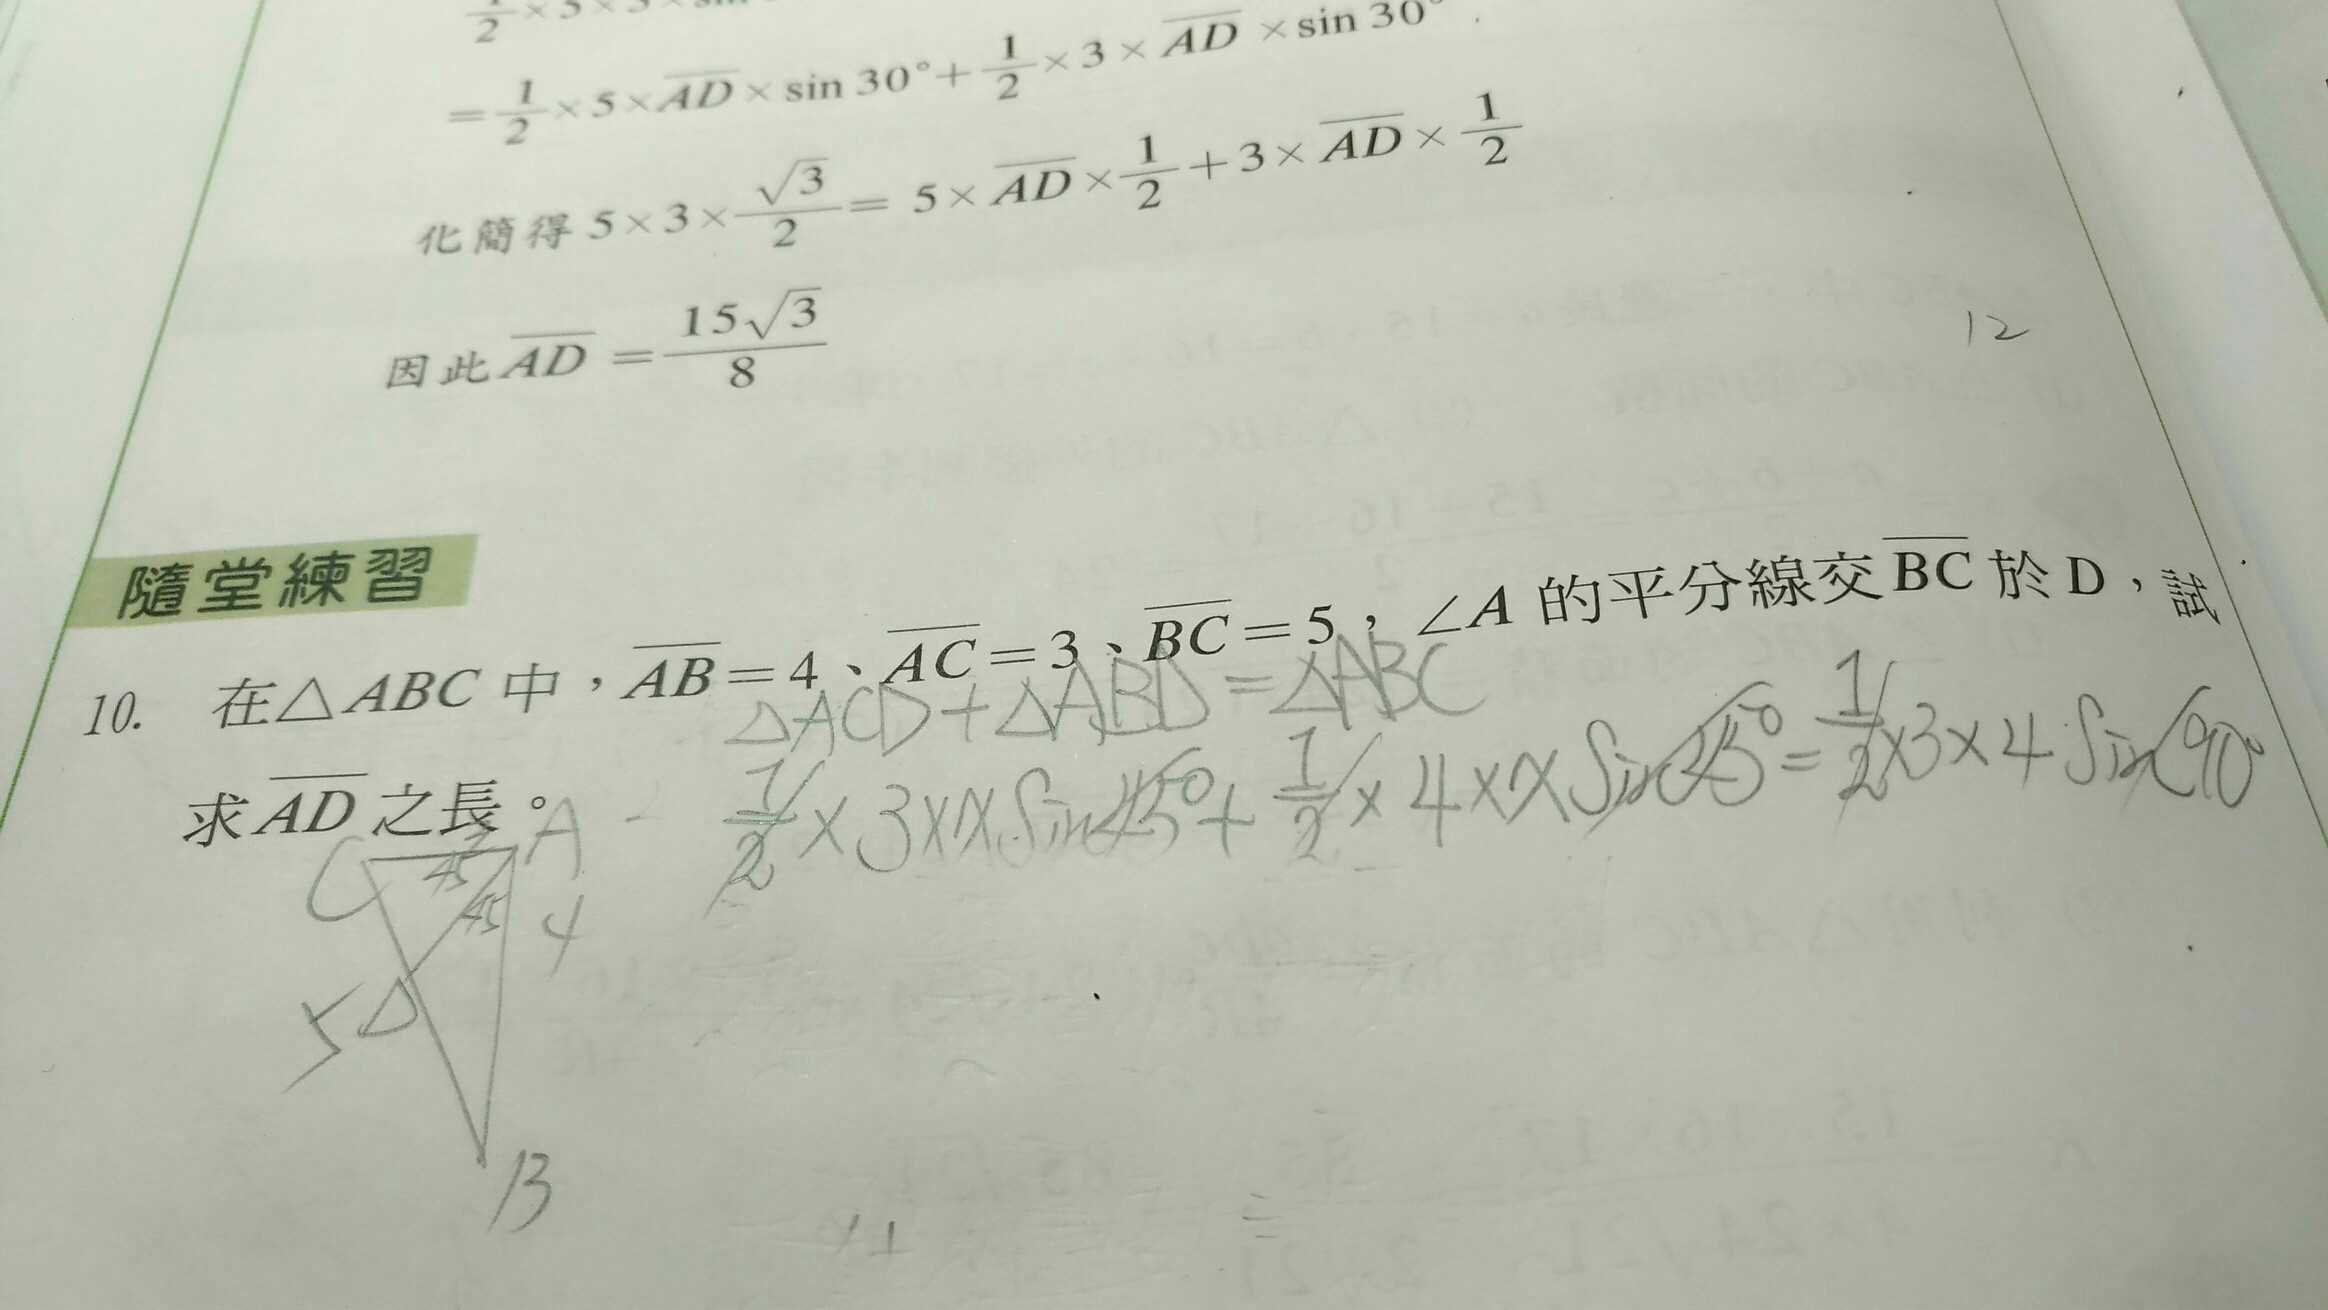 1/2 × 5 × 3 × sin
= 1/2 × 5 × \overline{AD} × sin 30° + 1/2 × 3 × \overline{AD} × sin 30°
化簡得 5 × 3 × √3/2 = 5 × \overline{AD} × 1/2 + 3 × \overline{AD} × 1/2
因此 \overline{AD} = 15√3/8
12
隨堂練習
10. 在△ABC 中，\overline{AB} = 4、\overline{AC} = 3、\overline{BC} = 5，∠A 的平分線交 \overline{BC} 於 D，試
求 \overline{AD} 之長。
△ACD + △ABD = △ABC
1/2 × 3 × x Sin45° + 1/2 × 4 × x Sin45° = 1/2 × 3 × 4 Sin90°
C 3 A
45
45 4
5 D
B